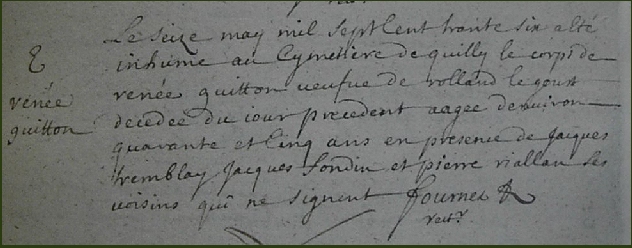 Le seize may mil sept Cent trante six a esté
inhumé au Cymetiere de quilly le corps de
renée quitton veufue de rolland le gour
decedée du iour precedent aagée denuiron
quarante et Cinq ans en presence de Jacques
tremblay Jacques Sondin et pierre riallan ses
voisins qui ne signent fournet
rectr
renée
quitton